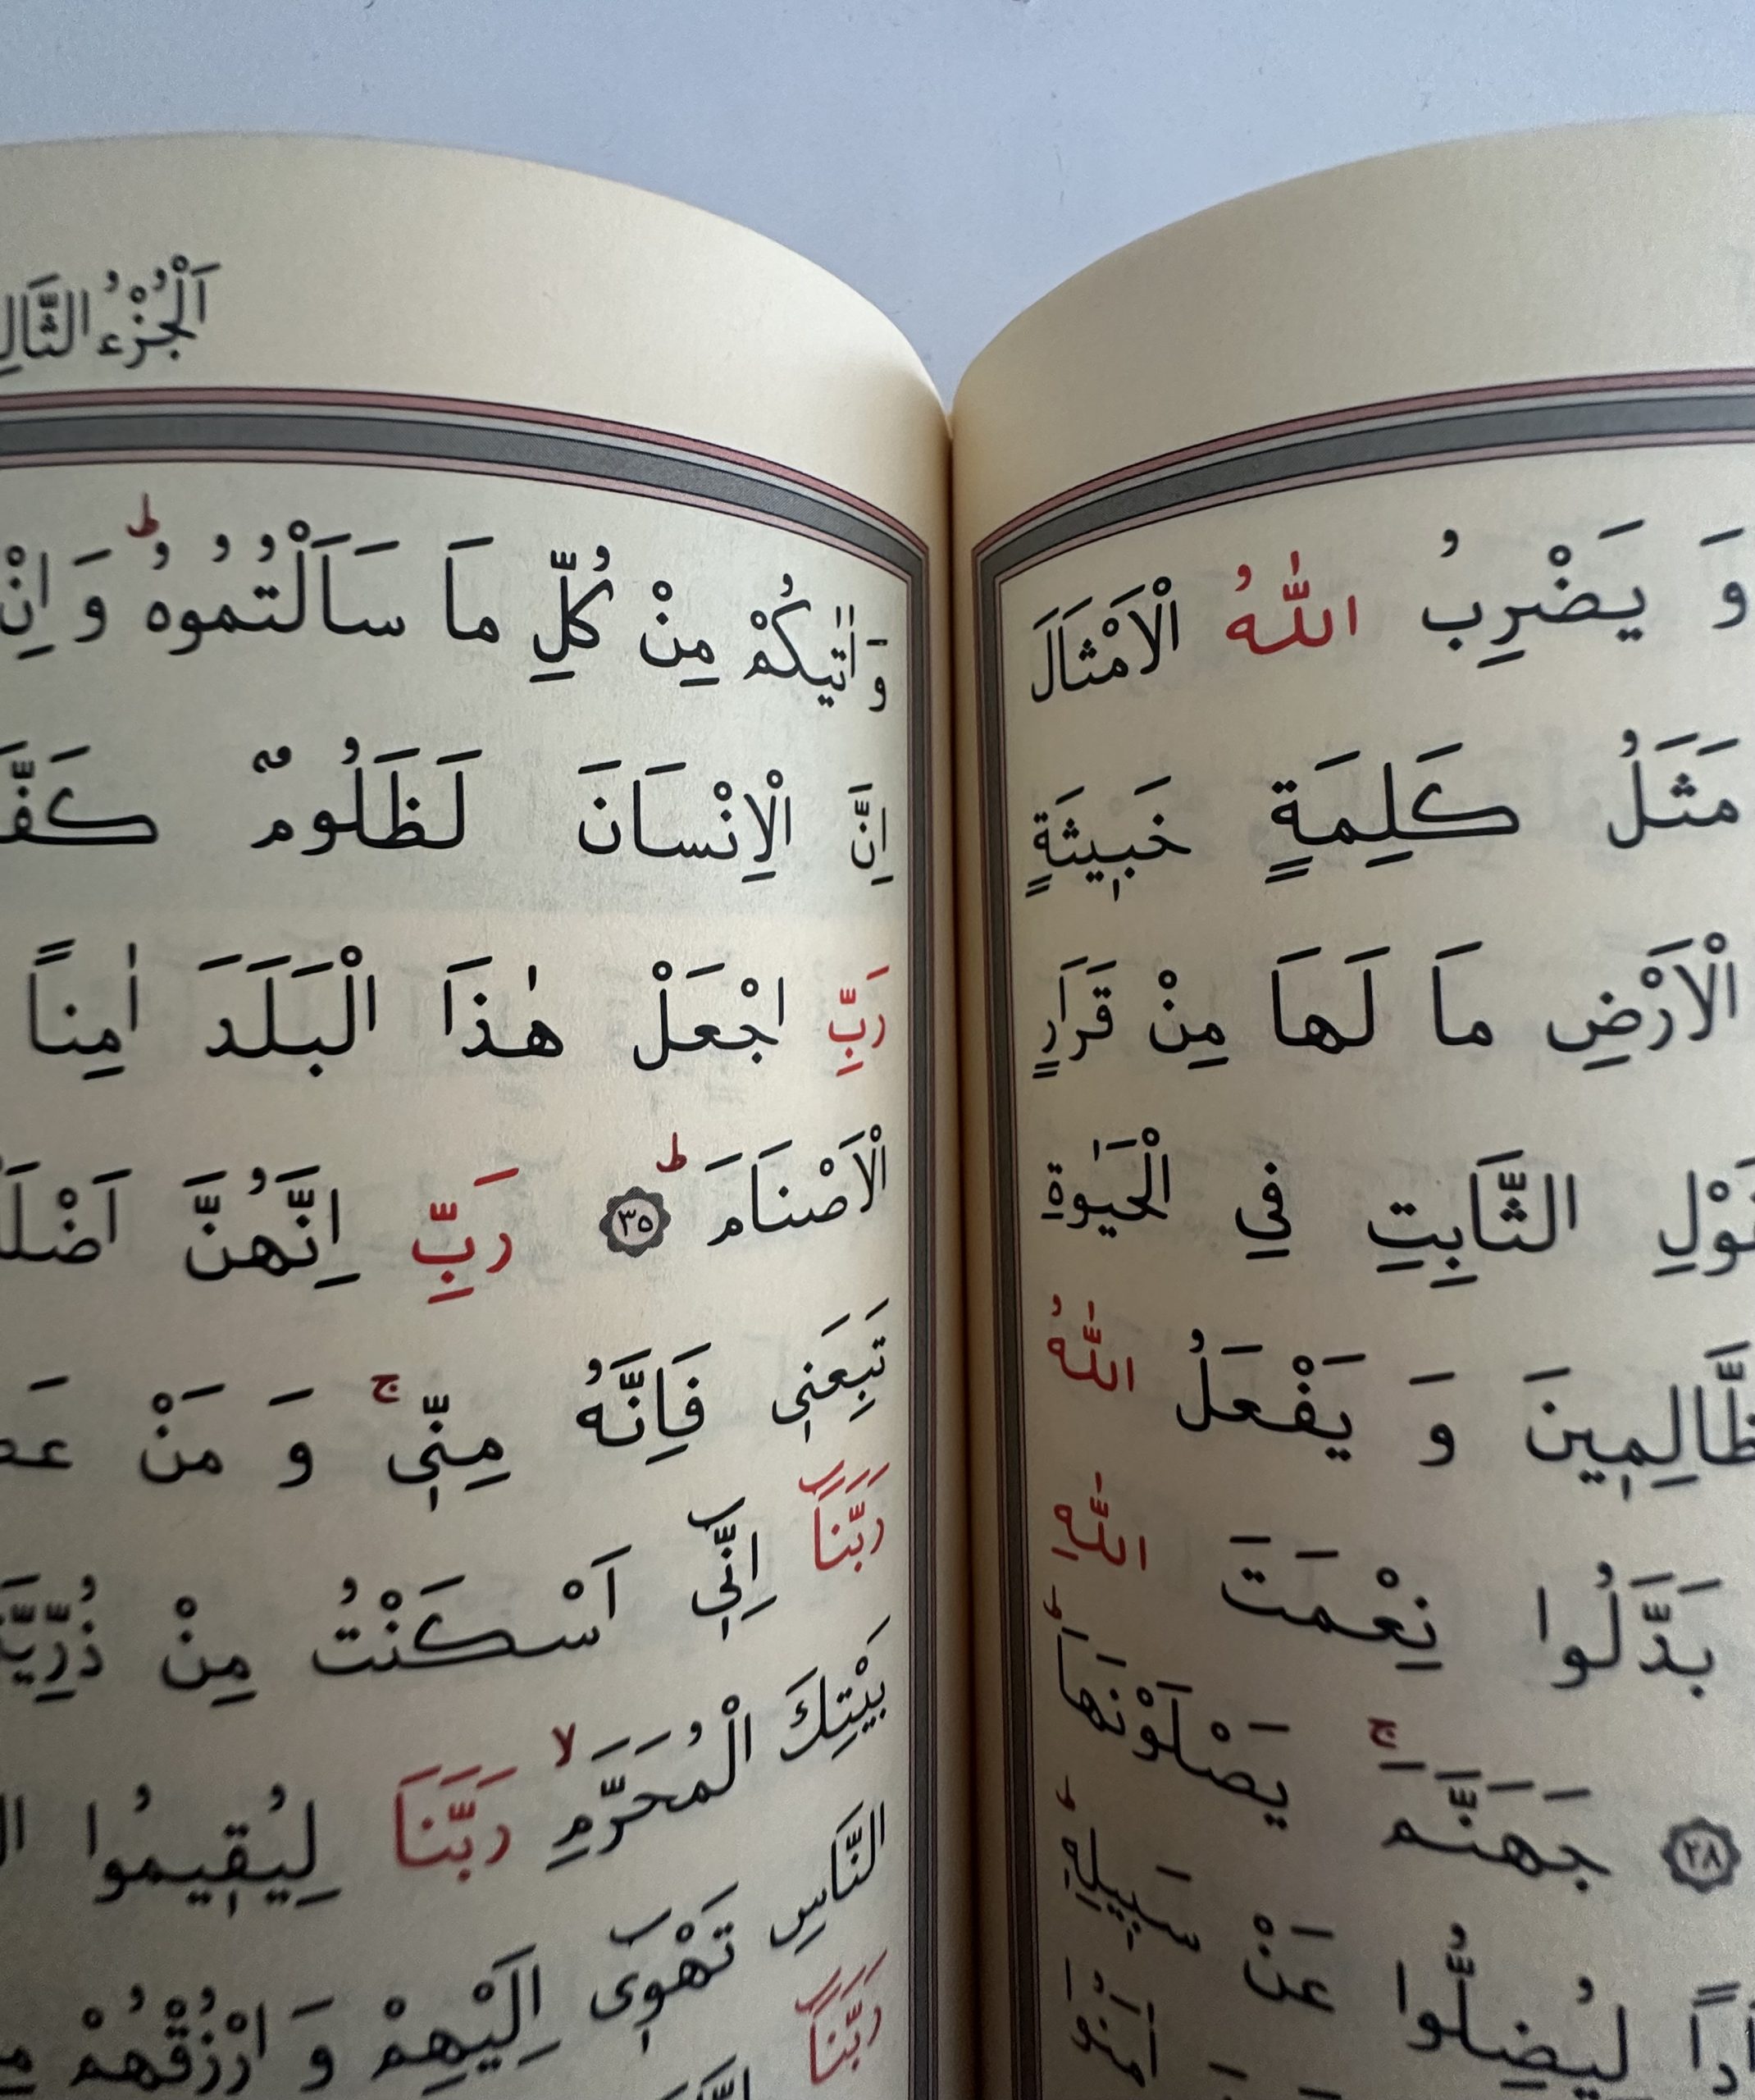 وَ يَضْرِبُ اللّٰهُ الْاَمْثَالَ
مَثَلُ كَلِمَةٍ خَبٖيثَةٍ
الْاَرْضِ مَا لَهَا مِنْ قَرَارٍ
الثَّابِتِ فِي الْحَيٰوةِ
وَ يَفْعَلُ اللّٰهُ
بَدَّلُوا نِعْمَتَ اللّٰهِ
﴿٢٨﴾ جَهَنَّمَۚ يَصْلَوْنَهَاۜ
لِيُضِلُّوا عَنْ سَبٖيلِهٖۜ
اٰمَنُوا
اَلْجُزْءُ
وَ اٰتٰيكُمْ مِنْ كُلِّ مَا سَاَلْتُمُوهُۜ وَ اِنْ
اِنَّ الْاِنْسَانَ لَظَلُومٌ
رَبِّ اجْعَلْ هٰذَا الْبَلَدَ اٰمِناً
الْاَصْنَامَۜ ﴿٣٥﴾ رَبِّ اِنَّهُنَّ
تَبِعَنٖي فَاِنَّهُ مِنّٖيۚ وَ مَنْ
رَبَّنَٓا اِنّٖٓي اَسْكَنْتُ مِنْ
بَيْتِكَ الْمُحَرَّمِۙ رَبَّنَا لِيُقٖيمُوا
النَّاسِ تَهْوٖٓي اِلَيْهِمْ وَ ارْزُقْهُمْ
رَبَّنَٓا